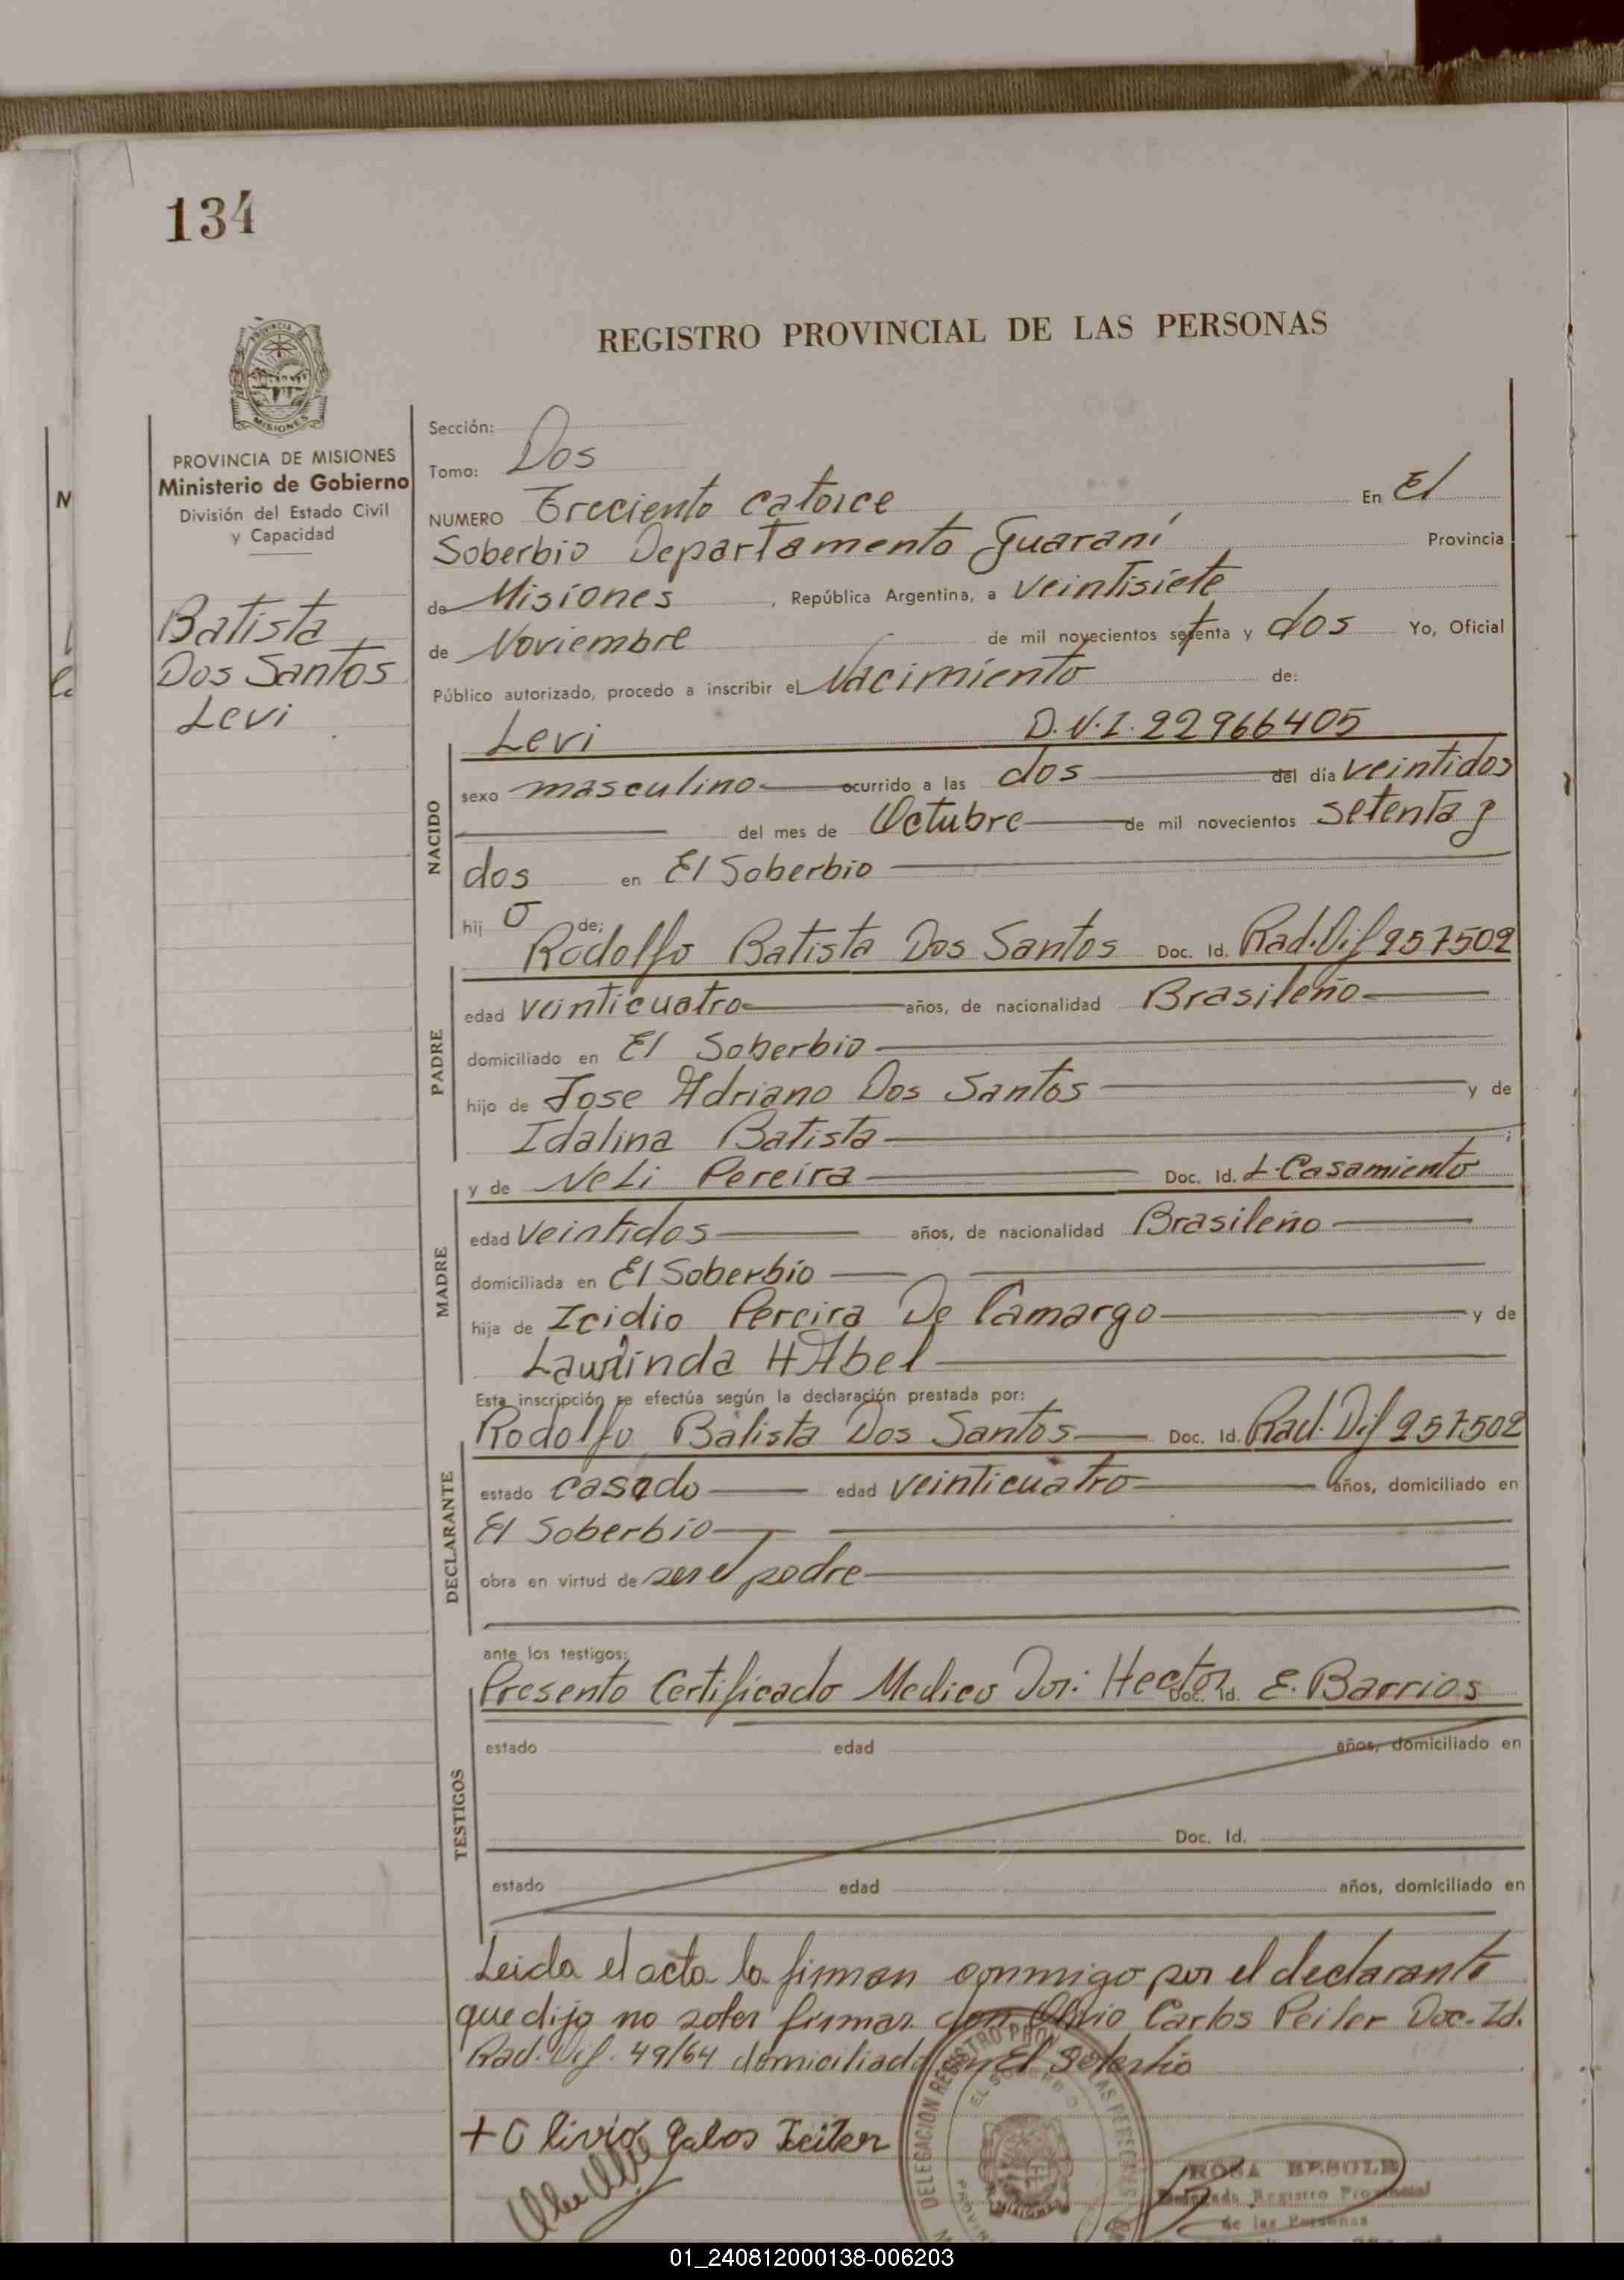 134
REGISTRO PROVINCIAL DE LAS PERSONAS
PROVINCIA DE MISIONES
Ministerio de Gobierno
División del Estado Civil
y Capacidad
Batista
Dos Santos
Levi
Sección:
Tomo: Dos
NUMERO Treciento catorce En El
Soberbio Departamento Guaraní Provincia
de Misiones, República Argentina, a veintisiete
de Noviembre de mil novecientos setenta y dos Yo, Oficial
Público autorizado, procedo a inscribir el Nacimiento de:
Levi D.N.I. 22966405
NACIDO
sexo masculino ocurrido a las dos del día veintidos
del mes de Octubre de mil novecientos setenta y
dos en El Soberbio
hijo de:
Rodolfo Batista Dos Santos Doc. Id. Rad. Dif 257502
PADRE
edad veinticuatro años, de nacionalidad Brasileño
domiciliado en El Soberbio
hijo de Jose Adriano Dos Santos y de
Idalina Batista;
y de Neli Pereira Doc. Id. L. Casamiento
MADRE
edad veintidos años, de nacionalidad Brasileño
domiciliada en El Soberbio
hija de Icidio Pereira De Camargo y de
Laurinda H Abel
Esta inscripción se efectúa según la declaración prestada por:
Rodolfo Batista Dos Santos Doc. Id. Rad. Dif 257502
DECLARANTE
estado casado edad veinticuatro años, domiciliado en
El Soberbio
obra en virtud de ser el padre
ante los testigos:
Presento Certificado Medico Dor: Hector Doc. Id. E. Barrios
TESTIGOS
estado edad años, domiciliado en
Doc. Id.
estado edad años, domiciliado en
Leida el acta la firman conmigo por el declarante
que dijo no saber firmar don Olivio Carlos Peiter Doc. Id.
Rad. Dif. 49/64 domiciliado en El Soberbio
+ Olivio Galos Teiter
DELEGACION REGISTRO PROV. LAS PERSONAS
EL SOBERBIO
MISIONES
ROSA BESOLD
Delegada Registro Provincial
de las Personas
01_240812000138-006203